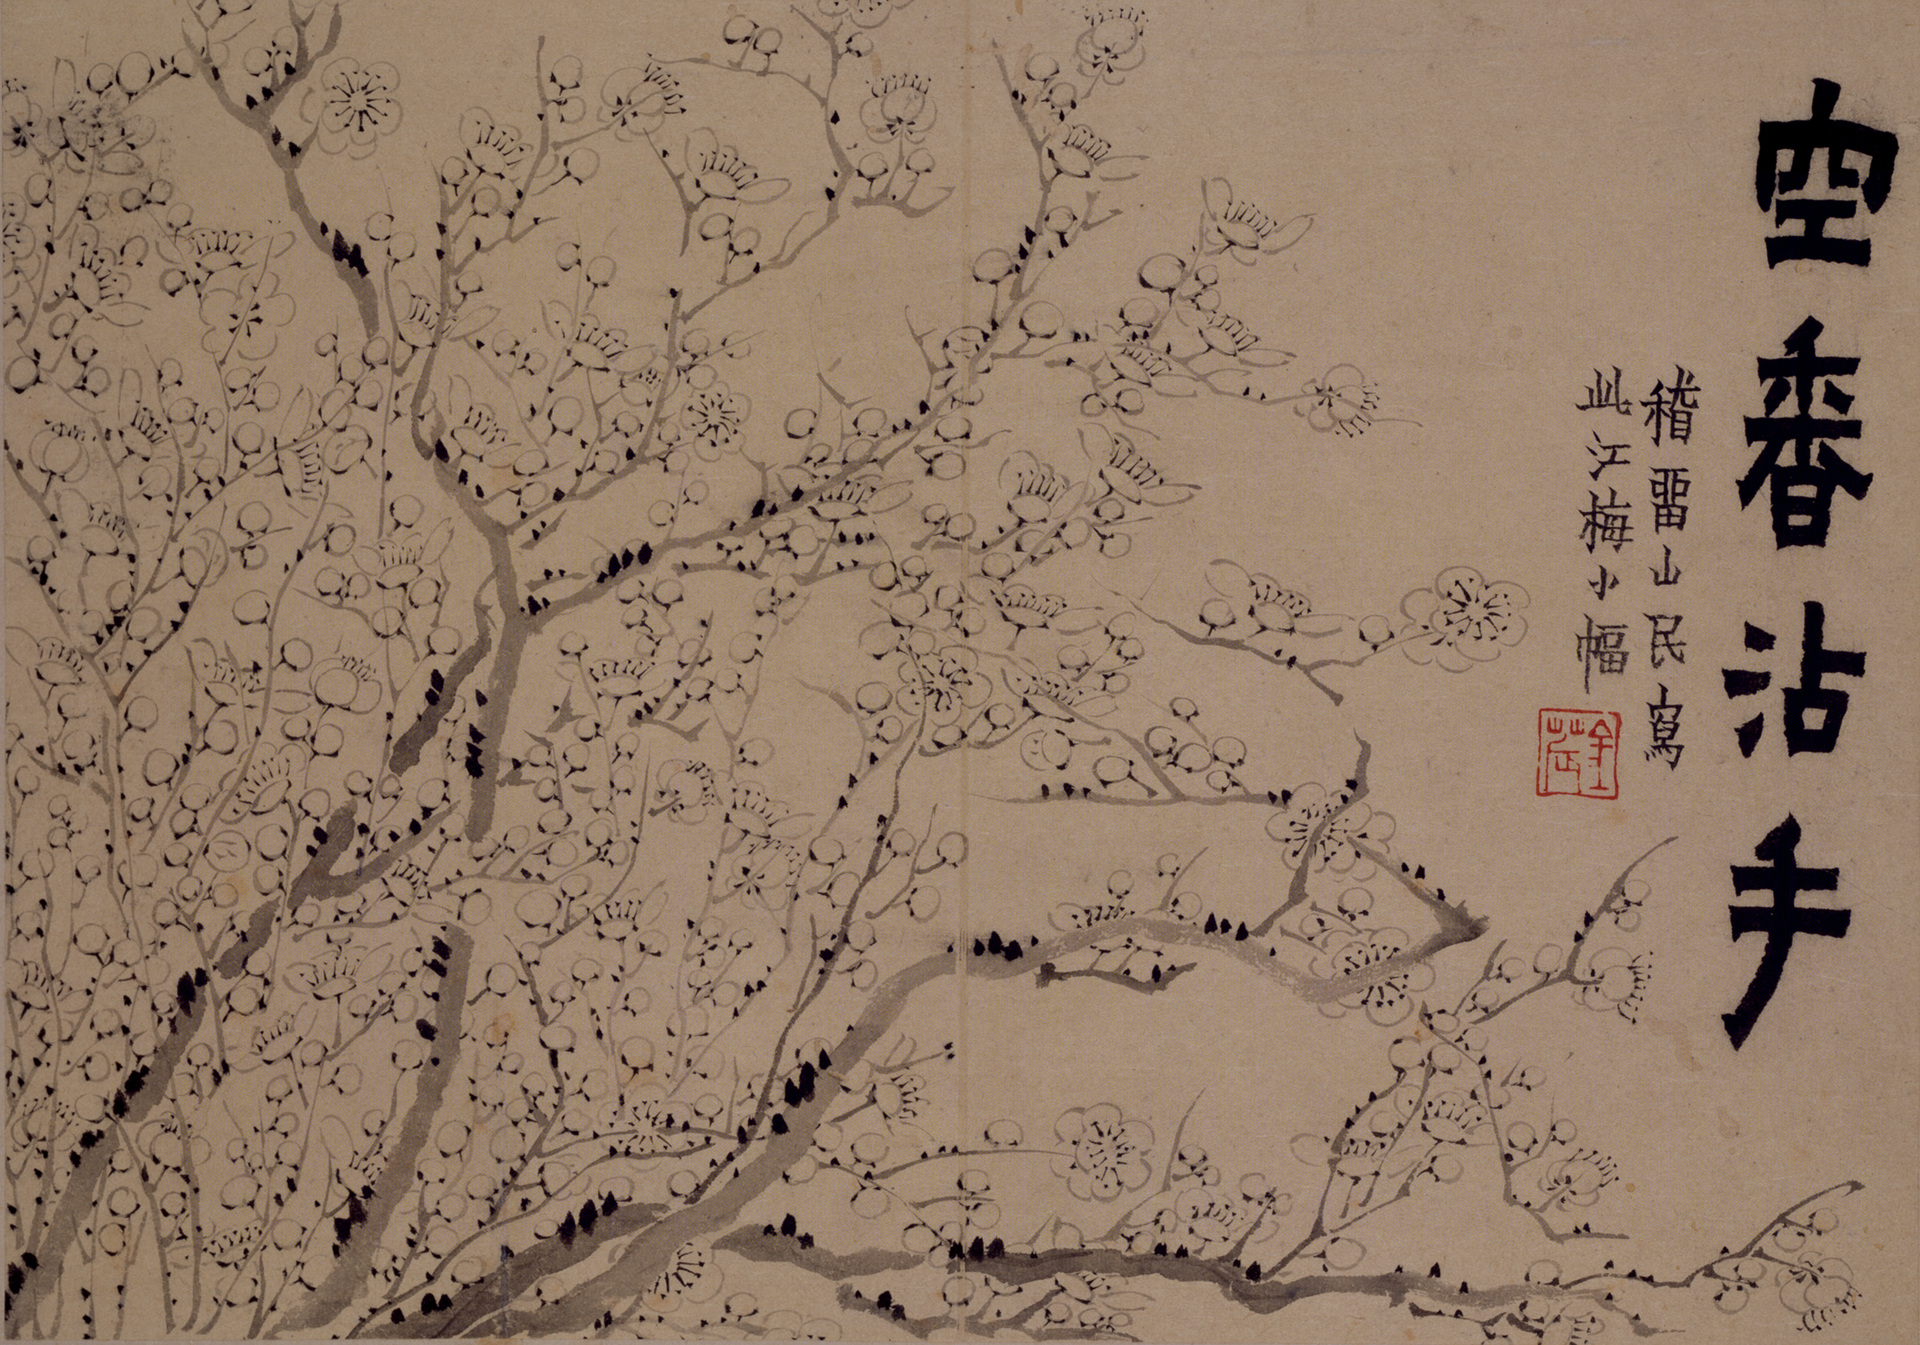 空香沾手
稽畱山民寫
此江梅小幅